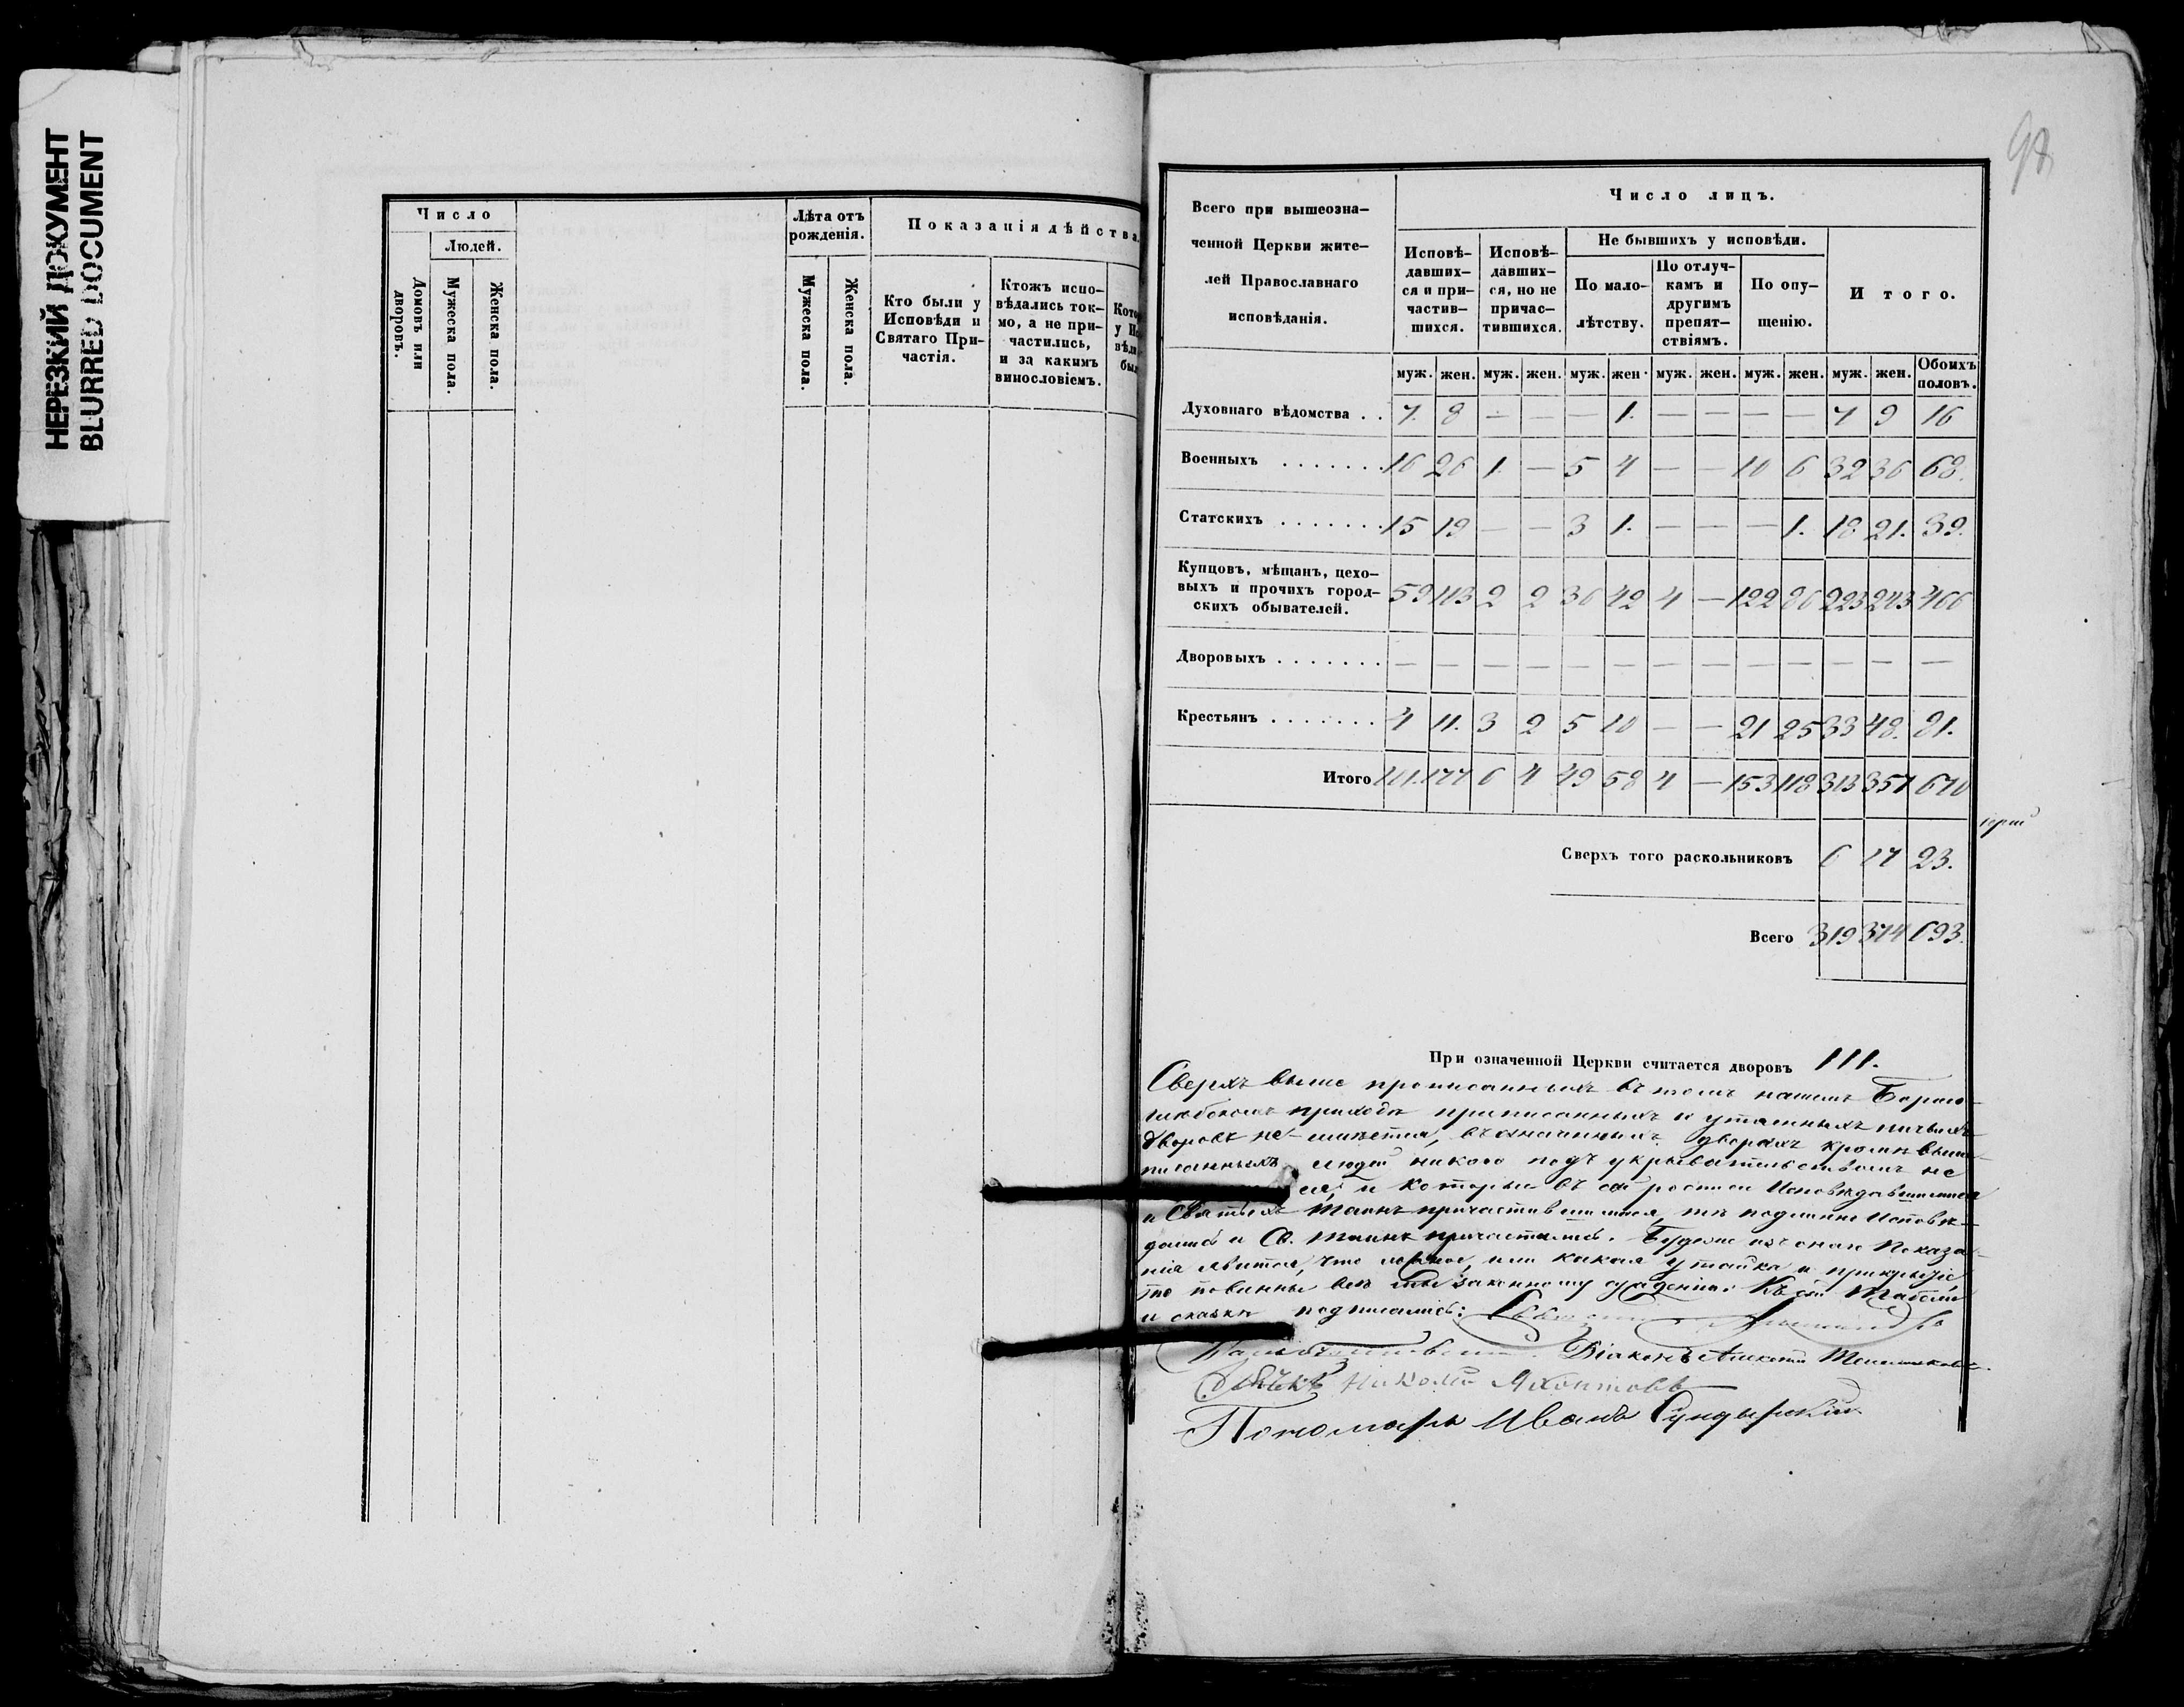 НЕРЕЗКИЙ ДОКУМЕНТ
BLURRED DOCUMENT
Число
Людей.
Домовъ или дворовъ.
Мужеска пола.
Женска пола.
Лѣта отъ рожденія.
Мужеска пола.
Женска пола.
Показанія дѣйства
Кто были у Исповѣди и Святаго Причастія.
Ктожъ испо-
вѣдались ток-
мо, а не при-
частились,
и за какимъ
винословіемъ.
98
Всего при вышеозна-
ченной Церкви жите-
лей Православнаго
исповѣданія.
Число лицъ.
Исповѣ-
давших-
ся и при-
частив-
шихся.
Исповѣ-
давших-
ся, но не
причас-
тившихся.
Не бывшихъ у исповѣди.
По мало-
лѣтству.
По отлуч-
камъ и
другимъ
препят-
ствіямъ.
По опу-
щенію.
Итого.
муж. жен. муж. жен. муж. жен. муж. жен. муж. жен. муж. жен. Обоихъ половъ.
Духовнаго вѣдомства . . 7. 8 — — — 1. — — — — 7 9 16
Военныхъ . . . . . . . 16 26 1. — 5 4 — — 10 6 32 36 68.
Статскихъ . . . . . . . 15 19 — — 3 1. — — — 1. 18. 21. 39.
Купцовъ, мѣщанъ, цехо-
выхъ и прочихъ город-
скихъ обывателей. 59 113 2 2 36 42 4 — 122 86 223 243 466
Дворовыхъ . . . . . . . — — — — — — — — — — — — —
Крестьянъ . . . . . . . 4 11. 3 2 5 10 — — 21 25 33 48. 81.
Итого 101. 177 6 4 49 58 4 — 153 118 313 357 670
Сверхъ того раскольниковъ 6 17 23.
Всего 319 374 693.
При означенной Церкви считается дворовъ 111.
Сверхъ выше прописанныхъ въ томъ нашемъ
приходѣ приписанныхъ и утаенныхъ ничьихъ
дворовъ не имѣется, въ означенныхъ дворахъ кромѣ выше
писанныхъ людей никого подъ укрывательствомъ не
и которые въ сей росписи Исповѣдавшимися
и Святыхъ Таинъ причастившимися, тѣ подлинно Исповѣ-
дались и Св. Таинъ причастились. Буде изъ онаго Показа-
нія явится, что ложное, или какая утайка и прикрытіе,
то повинны всѣ мы законному сужденію. Къ сей Табели
и сказкѣ подписались:
Діаконъ Алексѣй
Дьячекъ Николай Яхонтовъ
Пономарь Иванъ Сундырскій